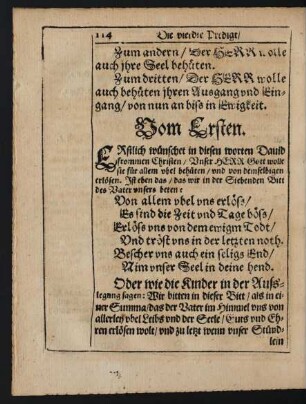 114 Die vierdte Predigt/
Zum andern/ Der HERR wolle
auch jhre Seel behüten.
Zum dritten/ Der HERR wolle
auch behüten jhren Ausgang vnd Ein-
gang/ von nun an biss in Ewigkeit.
Vom Ersten.
ERstlich wünschet in diesen worten Dauid
frommen Christen/ Vnser HERR Gott wolle
sie für allem vbel behüten/ vnd von demselbigen
erlösen. Ist eben das/ das wir in der Siebenden Bitt
des Vater vnsers beten:
Von allem vbel vns erlöss/
Es sind die Zeit vnd Tage böss/
Erlöss vns von dem ewigen Todt/
Vnd tröst vns in der letzten noth.
Bescher vns auch ein seligs End/
Nim vnser Seel in deine hend.
Oder wie die Kinder in der Auss-
legung sagen: Wir bitten in dieser Bitt/ als in ei-
ner Summa/ das der Vater im Himmel vns von
allerley vbel Leibs vnd der Seele/ Guts vnd Eh-
ren erlösen wolt/ vnd zu letzt wenn vnser Stünd-
lein